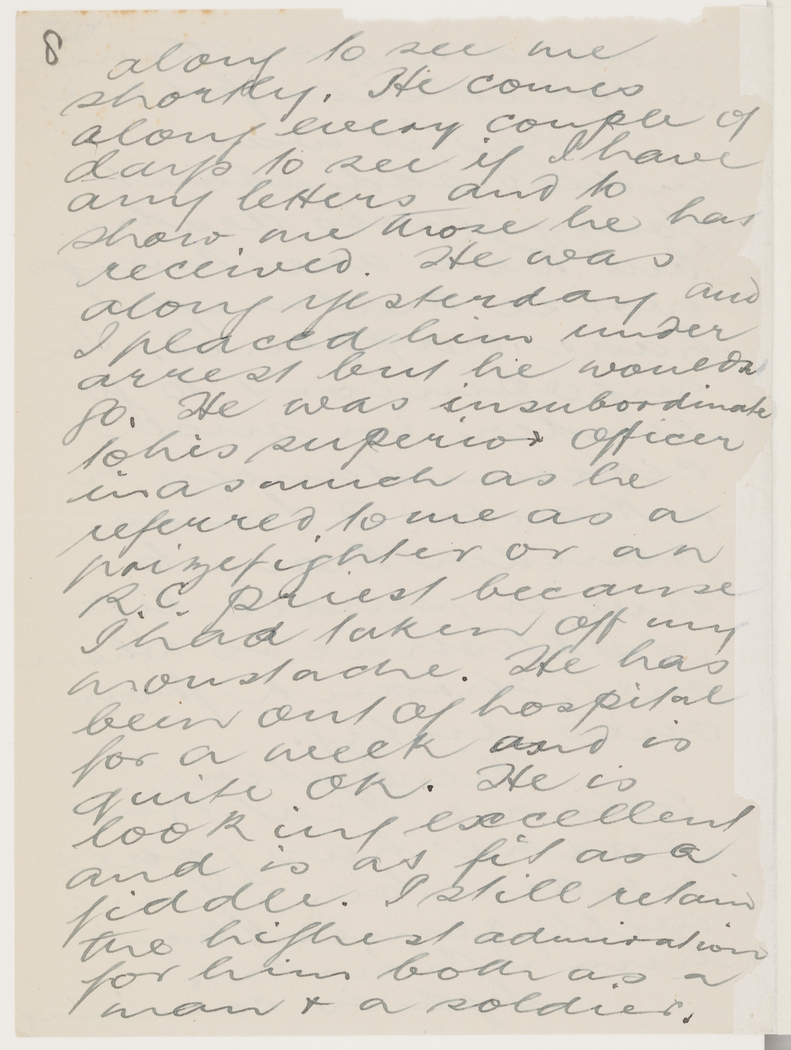 8
along to see me
shortly. He comes
along every couple of
days to see if I have
any letters and to
show me those he has
received. He was
along yesterday and
I placed him under
arrest but he wouldn
go. He was insubordinate
to his superior Officer
inasmuch as he
referred to me as a
prizefighter or an
R.C. priest because
I had taken off my
moustache. He has
been out of hospital
for a week and is
quite OK. He is
looking excellent
and is as fit as a
fiddle. I still retain
the highest admiration
for him both as a
man & a soldier.